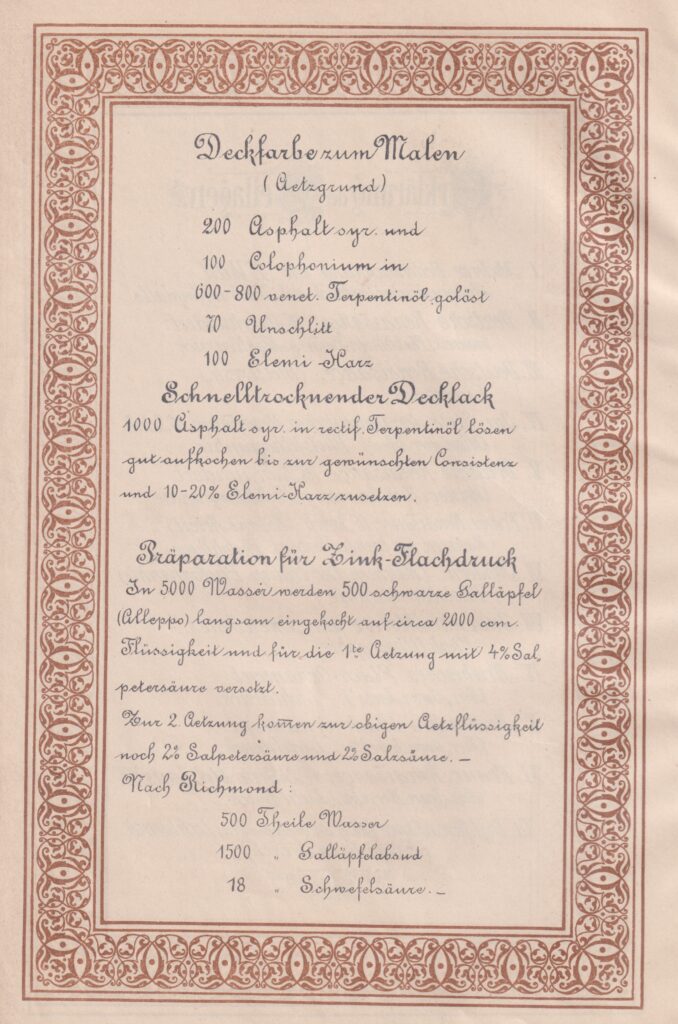 Deckfarbe zum Malen
(Aetzgrund)
200 Asphalt syr. und
100 Colophonium in
600-800 venet. Terpentinöl gelöst
70 Unschlitt
100 Elemi-Harz
Schnelltrocknender Decklack
1000 Asphalt syr. in rectif. Terpentinöl lösen
gut aufkochen bis zur gewünschten Consistenz
und 10-20% Elemi-Harz zusetzen.
Präparation für Zink-Flachdruck
In 5000 Wasser werden 500 schwarze Galläpfel
(Alleppo) langsam eingekocht auf circa 2000 ccm.
Flüssigkeit und für die 1te Aetzung mit 4% Sal,
petersäure versetzt.
Zur 2. Aetzung kom̅en zur obigen Aetzflüssigkeit
noch 2% Salpetersäure und 2% Salzsäure. —
Nach Richmond:
500 Theile Wasser
1500 „ Galläpfelabsud
18 „ Schwefelsäure. —